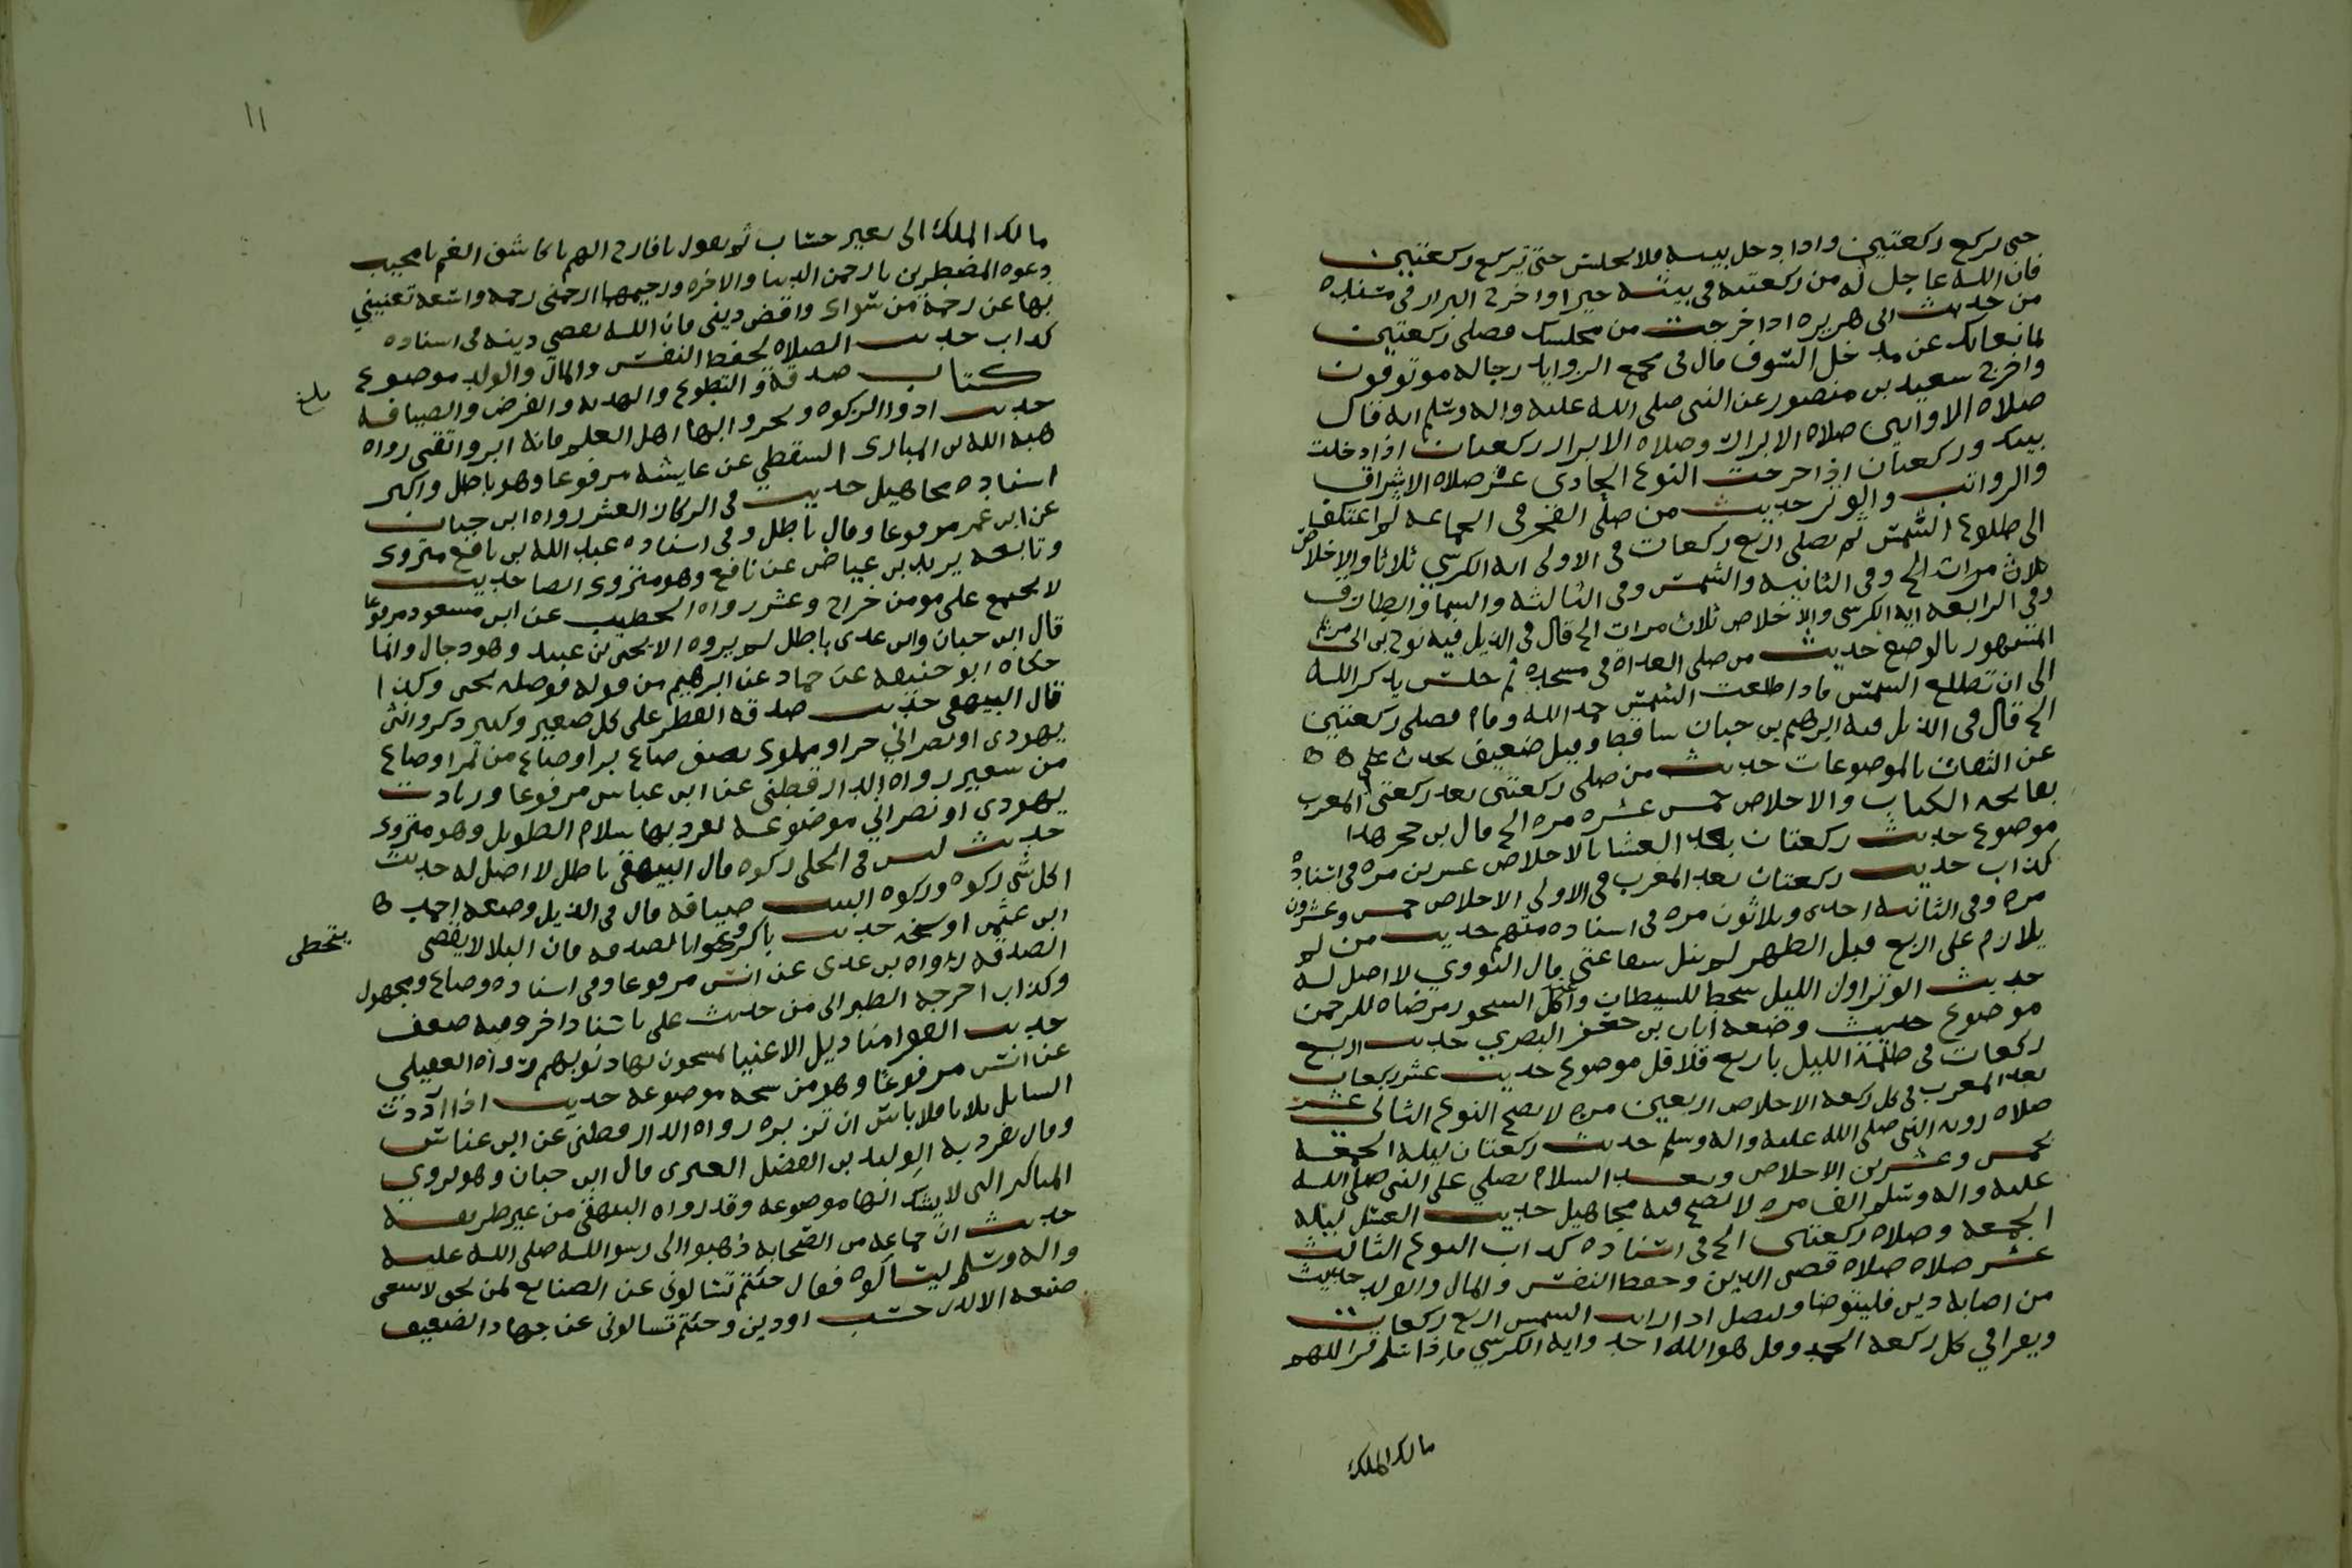 حتى يركع ركعتين واذا دخل بيته فلا يجلس حتى يركع ركعتين
فان الله عاجل له من ركعتيه في بيته خيرا واخرج البزار في مسنده
من حديث ابي هريرة اذا خرجت من مجلسك فصلي ركعتين
لمانعانك عن مدخل السوف قال في مجمع الزوايد رجاله موثوقون
واخرج سعيد بن منصور عن النبي صلى الله عليه واله وسلم انه قال
صلاه الاوابين صلاه الابرار وصلاه الابرار ركعتان اذا دخلت
بيتك وركعتان اذا خرجت النوع الحادي عشر صلاه الاشراق
والرواتب والوتر حديث من صلى الفجر في الجماعه ثم اعتكف
الى طلوع الشمس ثم يصلي اربع ركعات في الاولى ايه الكرسي ثلاثا والاخلاص
ثلاث مرات الخ وفي الثانيه والشمس وفي الثالثه والسما والطارق
وفي الرابعه ايه الكرسي والاخلاص ثلاث مرات الخ قال في الذيل فيه نوح بن ابي مريم
المشهور بالوضع حديث من صلى الغداة في مسجده ثم جلس يذكر الله
الى ان تطلع الشمس فاذا طلعت الشمس حمد الله وقام فصلى ركعتين
الخ قال في الذيل فيه ابرهيم بن حبان ساقط وقيل ضعيف يحدث
عن الثقات بالموضوعات حديث من صلى ركعتين بعد ركعتي المغرب
بفاتحه الكتاب والاخلاص خمس عشره مره الخ قال بن حجر هذا
موضوع حديث ركعتان بعد العشا بالاخلاص عشرين مره في اسناده
كذاب حديث ركعتان بعد المغرب في الاولى الاخلاص خمس وعشرون
مره وفي الثانيه احدى وثلاثون مره في اسناده متهم حديث من لم
يلازم على اربع قبل الظهر لم ينل شفاعتي قال النووي لا اصل له
حديث الوتر اول الليل سخط للشيطان واكل السحور مرضاه للرحمن
موضوع حديث وضعه ابان بن جعفر البصري حديث اربع
ركعات في ظلمة الليل باربع قلاقل موضوع حديث عشر ركعات
بعد المغرب في كل ركعه الاخلاص اربعين مره لا يصح النوع الثاني عشر
صلاه رويه النبي صلى الله عليه واله وسلم حديث ركعتان ليله الجمعه
بخمس وعشرين الاخلاص وبعد السلام يصلي على النبي صلى الله
عليه واله وسلم الف مره لا يصح فيه مجاهيل حديث الغسل ليله
الجمعه وصلاه ركعتين الخ في اسناده كذاب النوع الثالث
عشر صلاه صلاه قضى الدين وحفظ النفس والمال والولد حديث
من اصابه دين فليتوضا وليصل اذا زالت الشمس اربع ركعات
ويقرا في كل ركعه الحمد وقل هو الله احد وايه الكرسي فاذا سلم قرا اللهم
مالك الملك
١١
مالك الملك الى بغير حساب ثم يقول يا فارج الهم يا كاشف الغم يا مجيب
دعوه المضطرين يا رحمن الدنيا والاخره ورحيمهما ارحمني رحمه واسعه تغنيني
بها عن رحمة من سواك واقض ديني فان الله يقضي دينه في اسناده
كذاب حديث الصلاه لحفظ النفس والمال والولد موضوع
كتاب صدقة والتطوع والهديه والقرض والضيافه
بلغ
حديث ادوا الزكوه وتحروا ابها اهل العلم فانه ابر واتقى رواه
هبه الله بن المبارك السقطي عن عايشه مرفوعا وهو باطل واكثر
اسناده مجاهيل حديث في الركاز العشر رواه ابن حبان
عن ابن عمر مرفوعا وقال باطل وفي اسناده عبد الله بن نافع متروك
وتابعه يزيد بن عياض عن نافع وهو متروك ايضا حديث
لا يجتمع على مومن خراج وعشر رواه الخطيب عن ابن مسعود مرفوعا
قال ابن حبان وابن عدي باطل لم يروه الا يحيى بن عبيد وهو دجال وانما
حكاه ابو حنيفه عن حماد عن ابرهيم من قوله فوصله يحيى وكذا
قال البيهقي حديث صدقه الفطر على كل صغير وكبير ذكر وانثى
يهودي او نصراني حر او مملوك نصف صاع بر او صاع من تمر او صاع
من شعير رواه الدارقطني عن ابن عباس مرفوعا وزيادت
يهودي او نصراني موضوعه تفرد بها سلام الطويل وهو متروك
حديث ليس في الحلي زكوه قال البيهقي باطل لا اصل له حديث
لكل شي زكوه وزكوه البيت ضيافه قال في الذيل وضعه احمد
ابن عثمن او شيخه حديث باكروا بالصدقه فان البلا لا يتخطى
الصدقه رواه بن عدي عن انس مرفوعا وفي اسناده وضاع ومجهول
وكذاب اخرجه الطبراني من حديث علي باسناد اخر وفيه ضعف
حديث الفقرا مناديل الاغنيا يمسحون بها ذنوبهم رواه العقيلي
عن انس مرفوعا وهو من نسخه موضوعه حديث اذا رددت
السايل ثلاثا فلا باس ان تزبره رواه الدارقطني عن ابن عباس
وقال تفرد به الوليد بن الفضل العنزي قال ابن حبان وهو يروي
المناكير التي لا يشك انها موضوعه وقد رواه البيهقي من غير طريقه
حديث ان جماعه من الصحابه ذهبوا الى رسول الله صلى الله عليه
واله وسلم ليسالوه فقال جئتم تسالوني عن الصنايع لمن تحق لا ينبغي
صنعه الا لذي حسب او دين وجئتم تسالوني عن جهاد الضعيف